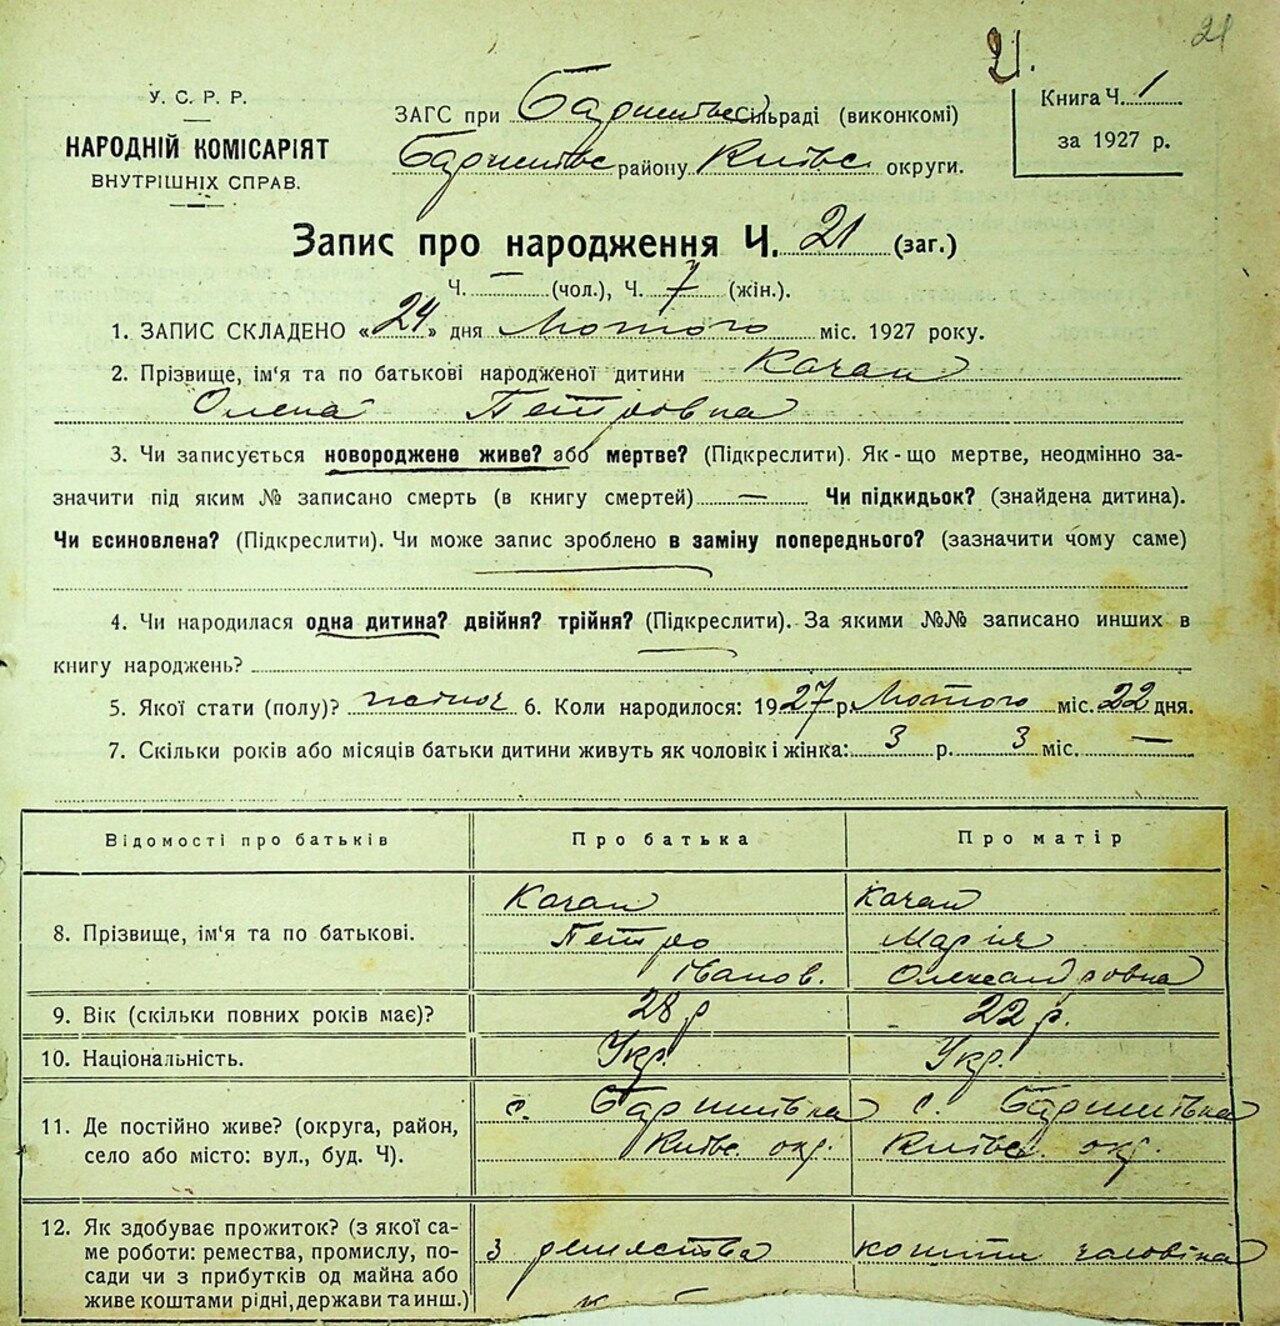 21
21.
У. С. Р. Р.
НАРОДНІЙ КОМІСАРІЯТ
ВНУТРІШНІХ СПРАВ.
ЗАГС при Баришівс сільраді (виконкомі)
Баришівс району Київс. округи.
Книга Ч. 1
за 1927 р.
Запис про народження Ч. 21 (заг.)
Ч. — (чол.), Ч. 7 (жін.).
1. ЗАПИС СКЛАДЕНО «24» дня Лютого міс. 1927 року.
2. Прізвище, ім'я та по батькові народженої дитини Качан
Олена Петровна
3. Чи записується новороджене живе? або мертве? (Підкреслити). Як-що мертве, неодмінно за-
значити під яким № записано смерть (в книгу смертей) — Чи підкидьок? (знайдена дитина).
Чи всиновлена? (Підкреслити). Чи може запис зроблено в заміну попереднього? (зазначити чому саме)
4. Чи народилася одна дитина? двійня? трійня? (Підкреслити). За якими №№ записано инших в
книгу народжень?
5. Якої стати (полу)? жіноч 6. Коли народилося: 1927 р. Лютого міс. 22 дня.
7. Скільки років або місяців батьки дитини живуть як чоловік і жінка: 3 р. 3 міс. —
Відомості про батьків Про батька Про матір
Качан Качан
8. Прізвище, ім'я та по батькові. Петро Марія
Іванов. Олександровна
9. Вік (скільки повних років має)? 28 р 22 р.
10. Національність. Укр. Укр.
с. Баришівка с. Баришівка
11. Де постійно живе? (округа, район, Київс. окр. Київс. окр.
село або місто: вул., буд. Ч).
12. Як здобуває прожиток? (з якої са-
ме роботи: ремества, промислу, по- з ремества кошти чоловіка
сади чи з прибутків од майна або
живе коштами рідні, держави та инш.)